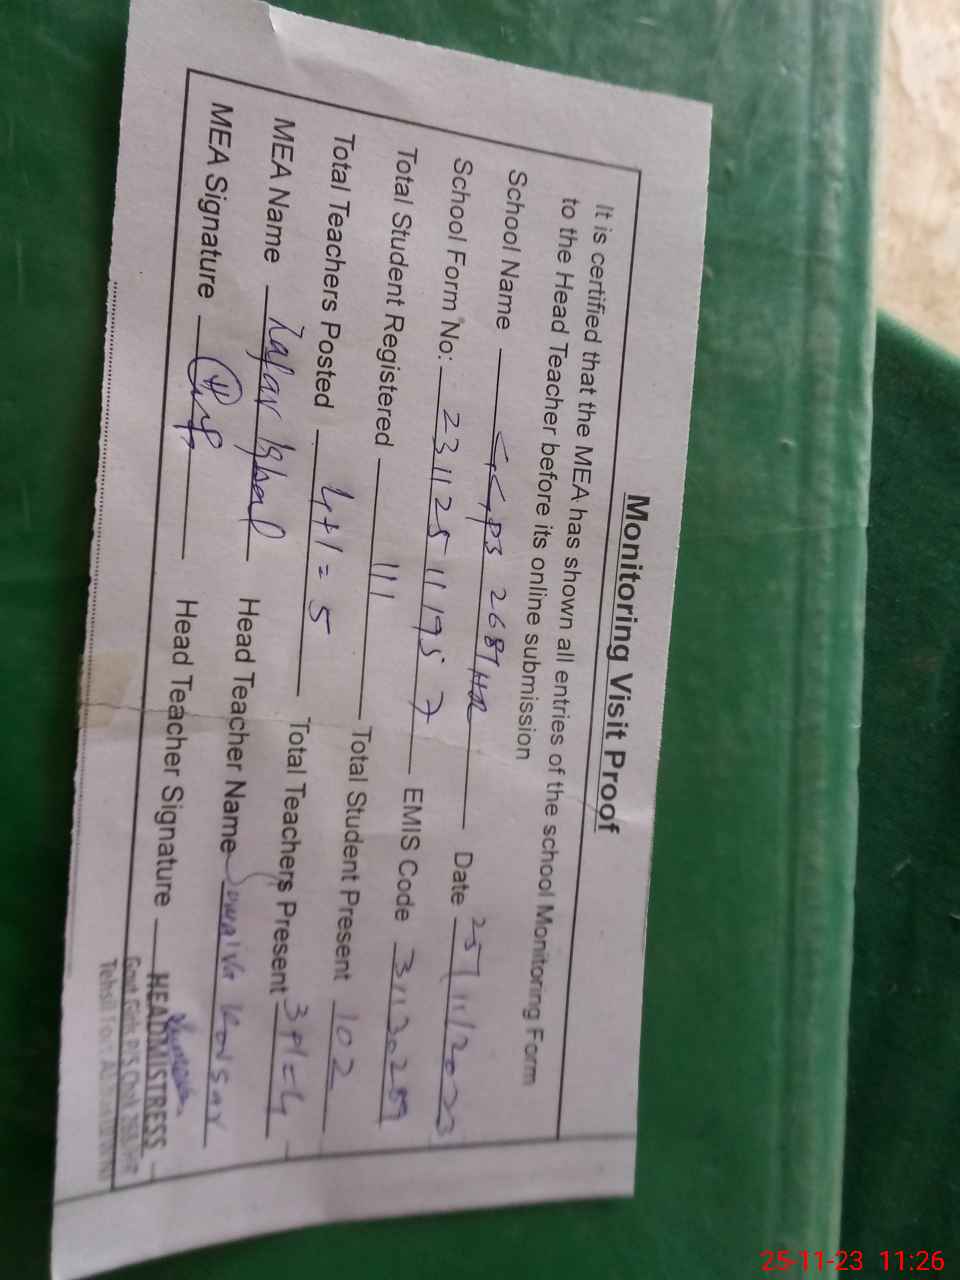 Monitoring Visit Proof
It is certified that the MEA has shown all entries of the school Monitoring Form
to the Head Teacher before its online submission
School Name GGPS 268/HR Date 25/11/2023
School Form No: 23112511195 7 EMIS Code 31130289
Total Student Registered 111 Total Student Present 102
Total Teachers Posted 4+1=5 Total Teachers Present 3+1=4
MEA Name Zafar Iqbal Head Teacher Name Kousar
MEA Signature Head Teacher Signature
HEADMISTRESS
Govt Girls P/S Chak 268/HR
Tehsil Fort Abbas
25-11-23 11:26